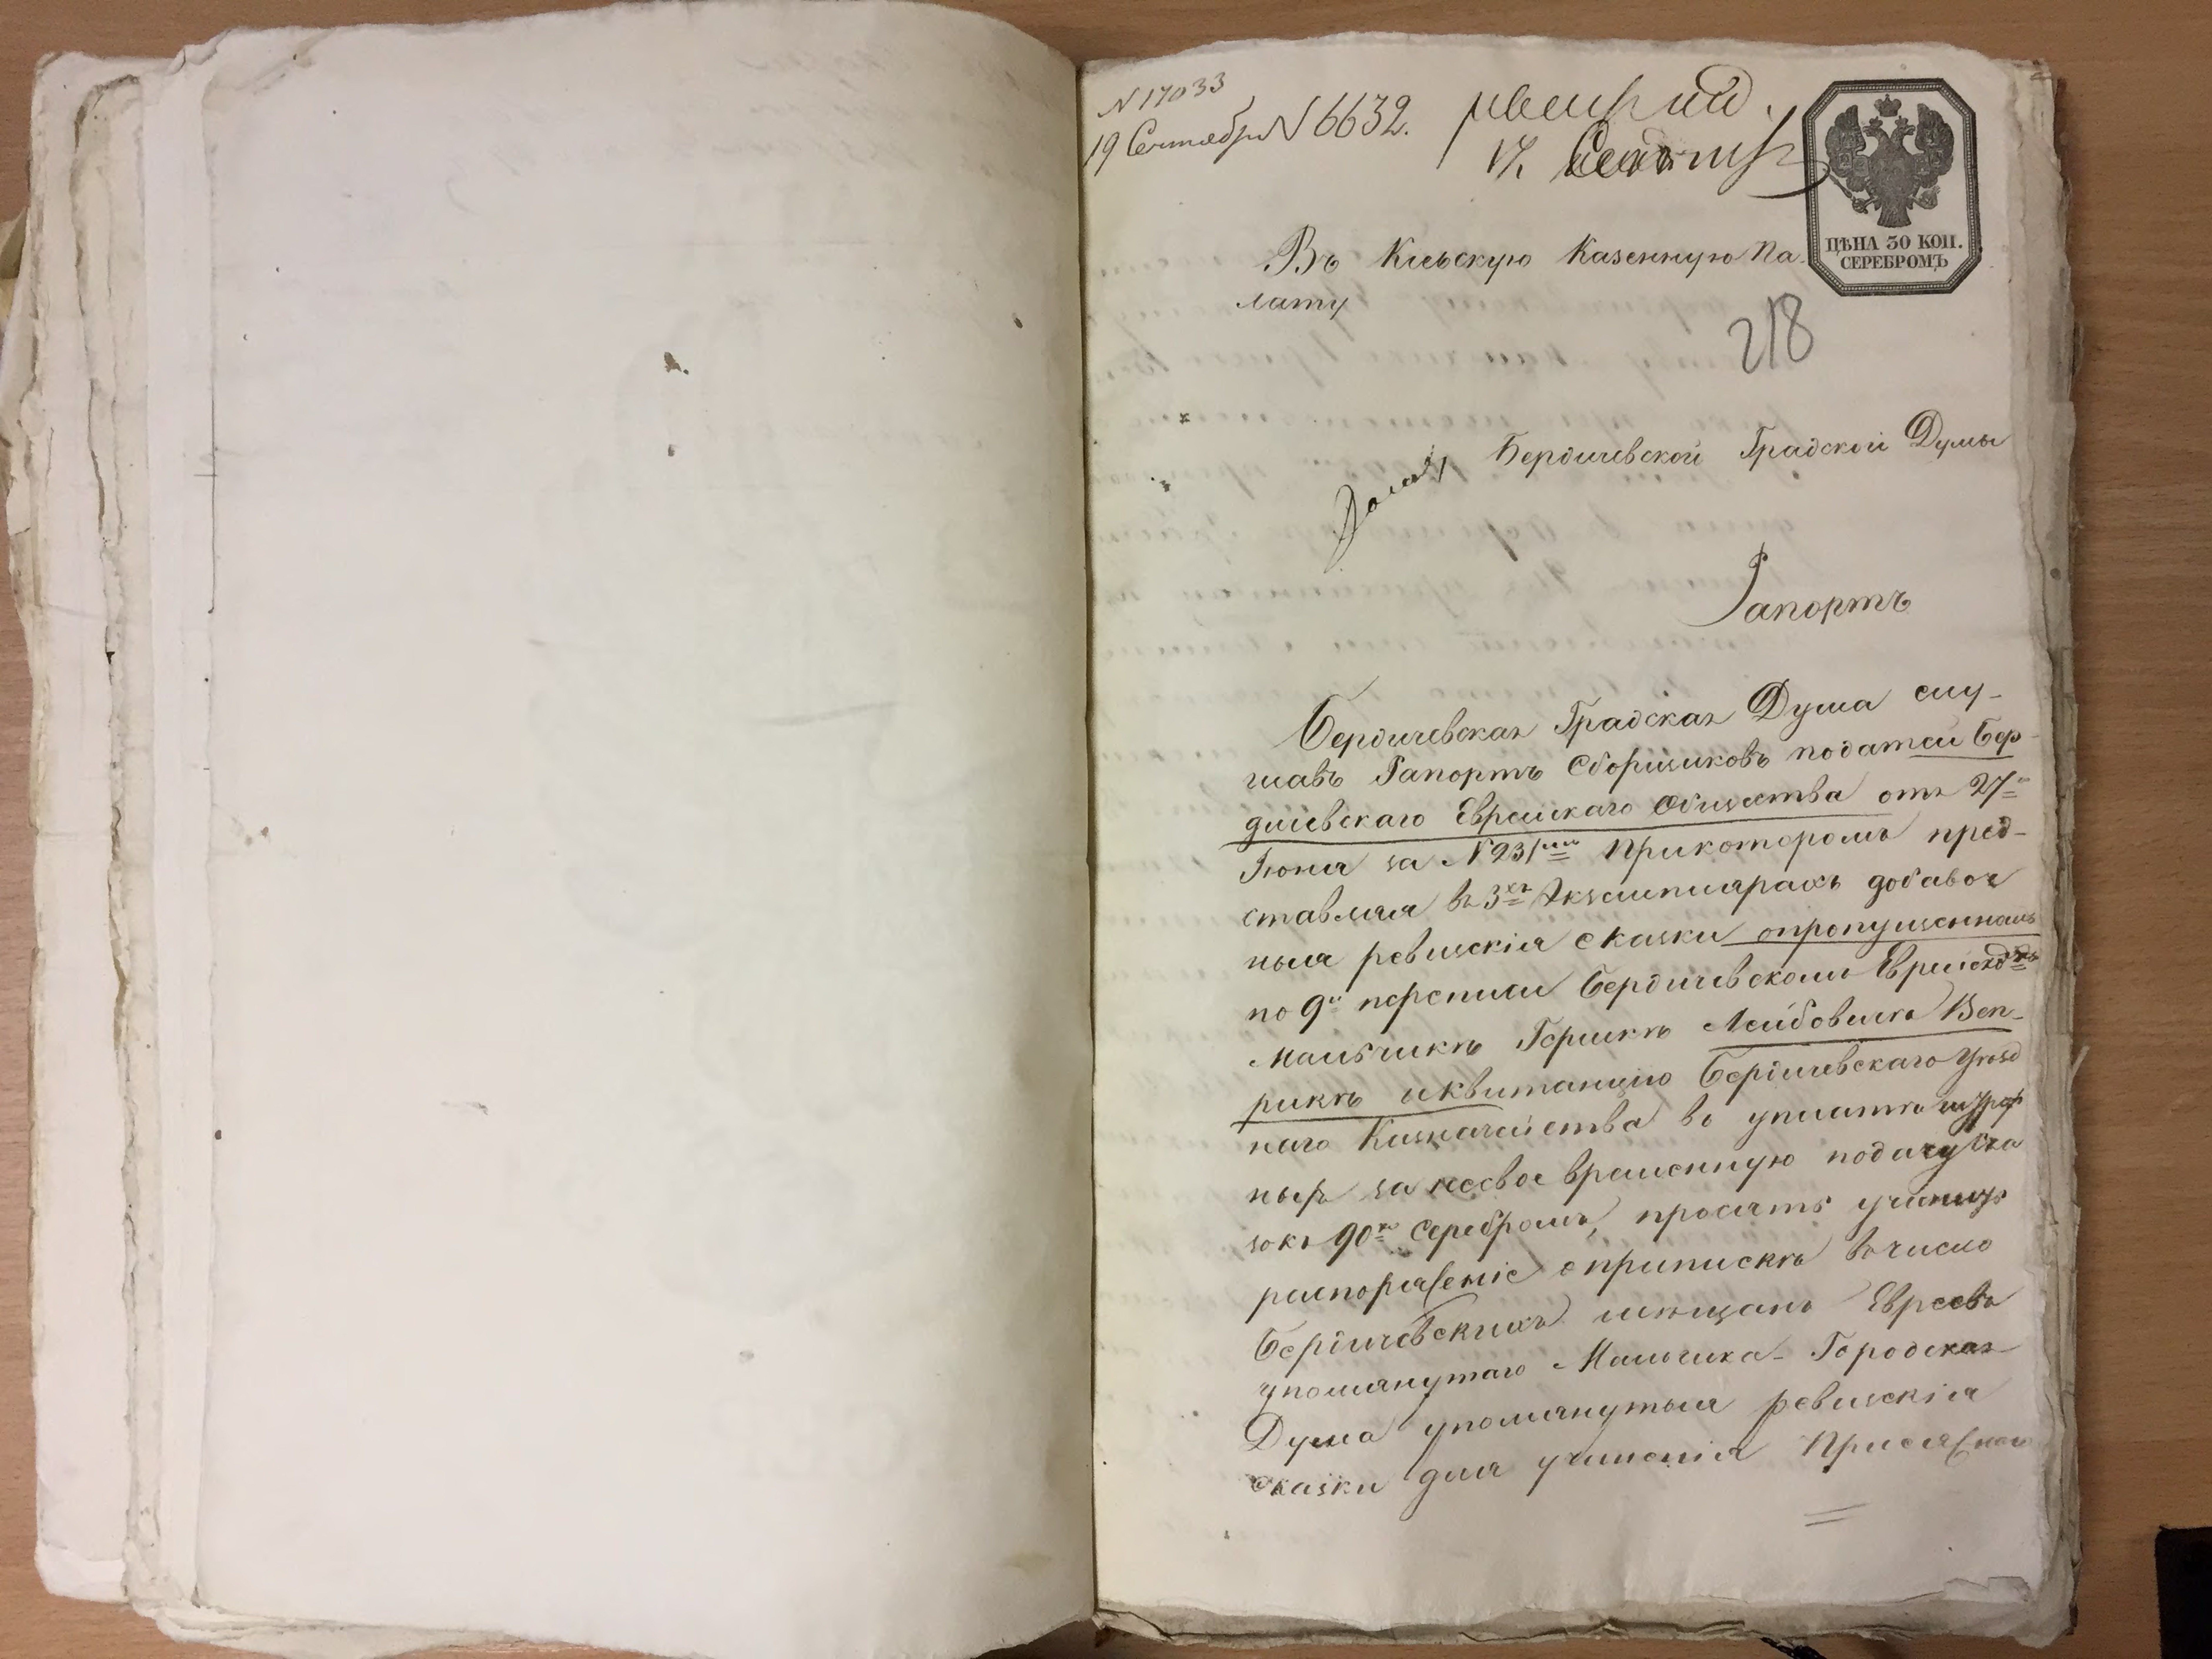 N 17033
19 Сентября N 6632.
17 Сентяб
ЦѢНА 30 КОП.
СЕРЕБРОМЪ
Въ Кіевскую Казенную Па-
лату
218
Бердичевской Градской Думы
Рапортъ
Бердичевская Градская Дума слу-
шавъ Рапортъ Сборщиковъ податей Бер-
дичевскаго Еврейскаго Общества отъ 27го
Іюня за N 231мъ При которомъ пред-
ставляя въ 3хъ Экземплярахъ добавоч
ныя ревизскія сказки о пропущенномъ
по 9й переписи Бердичевскомъ Еврейск
Мальчикѣ Гершкѣ Лейбовичѣ Вен-
рикѣ и квитанцію Бердичевскаго Уѣзд
наго Казначейства въ уплатѣ штраф
ныхъ за несвоевременную подачу ска
зокъ 90 к серебромъ, просятъ учинить
распоряженіе о припискѣ въ число
Бердичевскихъ мѣщанъ Евреевъ
упомянутаго Мальчика - Городская
Дума упомянутыя ревизскія
сказки для учиненія